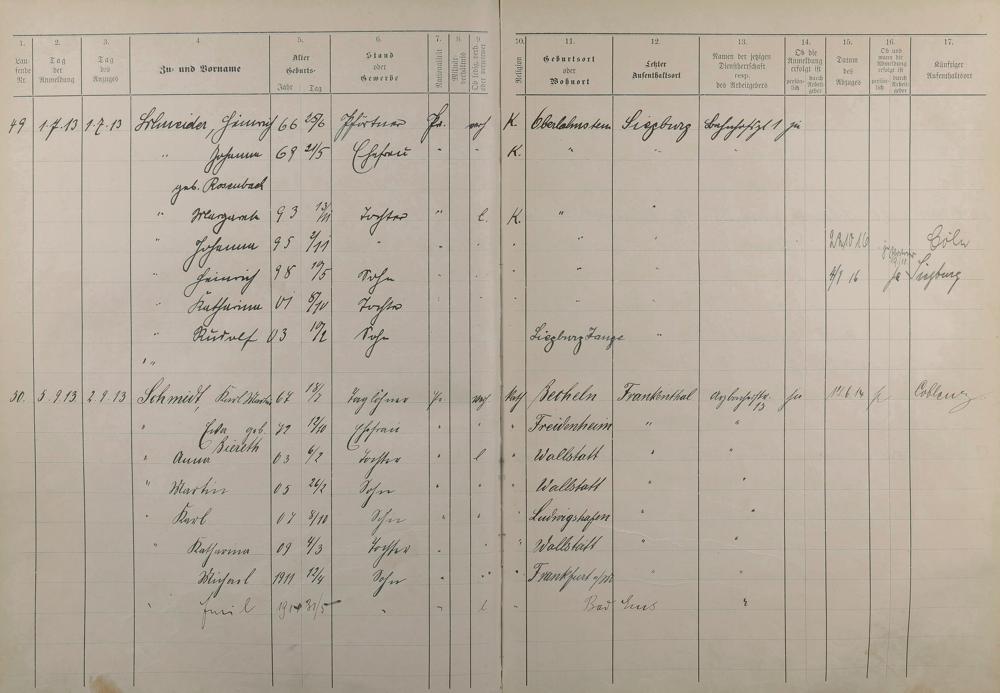 1. 2. 3. 4. 5. 6. 7. 8. 9. 10. 11. 12. 13. 14. 15. 16. 17.
Lau- fende Nr. Tag der Anmeldung Tag des Anzuges Zu- und Vorname Alter Geburts- Jahr Tag Stand oder Gewerbe Nationalität Militär- Ob ledig, verh. oder verwitwet Religion Geburtsort oder Wohnort Letzter Aufenthaltsort Namen der jetzigen Dienstherrschaft resp. des Arbeitgebers Ob die Anmeldung erfolgt ist persön- lich durch Arbeit- geber Datum des Abzuges Ob und wann die Abmeldung erfolgt ist persön- lich durch Arbeit- geber Künftiger Aufenthaltsort
49 1.7.13 1.7.13 Schneider, Heinrich 66 25/6 Pförtner Pr. verh K. Oberlahnstein Siegburg Bahnhofspl 1 ja
" Johanna 69 21/5 Ehefrau " " K. " " "
geb. Rosenbach
" Margarete 93 13/11 Tochter " l. K. " "
" Johanna 95 2/11 " " " " " 22 10 16 Cöln
" Heinrich 98 10/5 Sohn " " 4/1 16 ja Siegburg
" Katharina 01 5/10 Tochter " "
" Rudolf 03 10/2 Sohn Siegburg Zange "
" "
50. 5.9.13 2.9.13 Schmidt, Karl Martin 67 18/7 Taglöhner Pr verh Kath Becheln Frankenthal 13 ja 15.6.14 Coblenz
" Eva geb. 72 12/10 Ehefrau Freidenheim " "
Biereth
" Anna 03 6/2 Tochter " l " Wallstatt " "
" Martin 05 26/2 Sohn " " " Wallstatt " "
" Karl 07 8/10 Sohn " " " Ludwigshafen " "
" Katharina 09 4/3 Tochter " " " Wallstatt " "
Michael 1911 12/4 Sohn " " " Frankfurt a/M " "
" Emil 1914 31/5 " " l " Bad Ems "